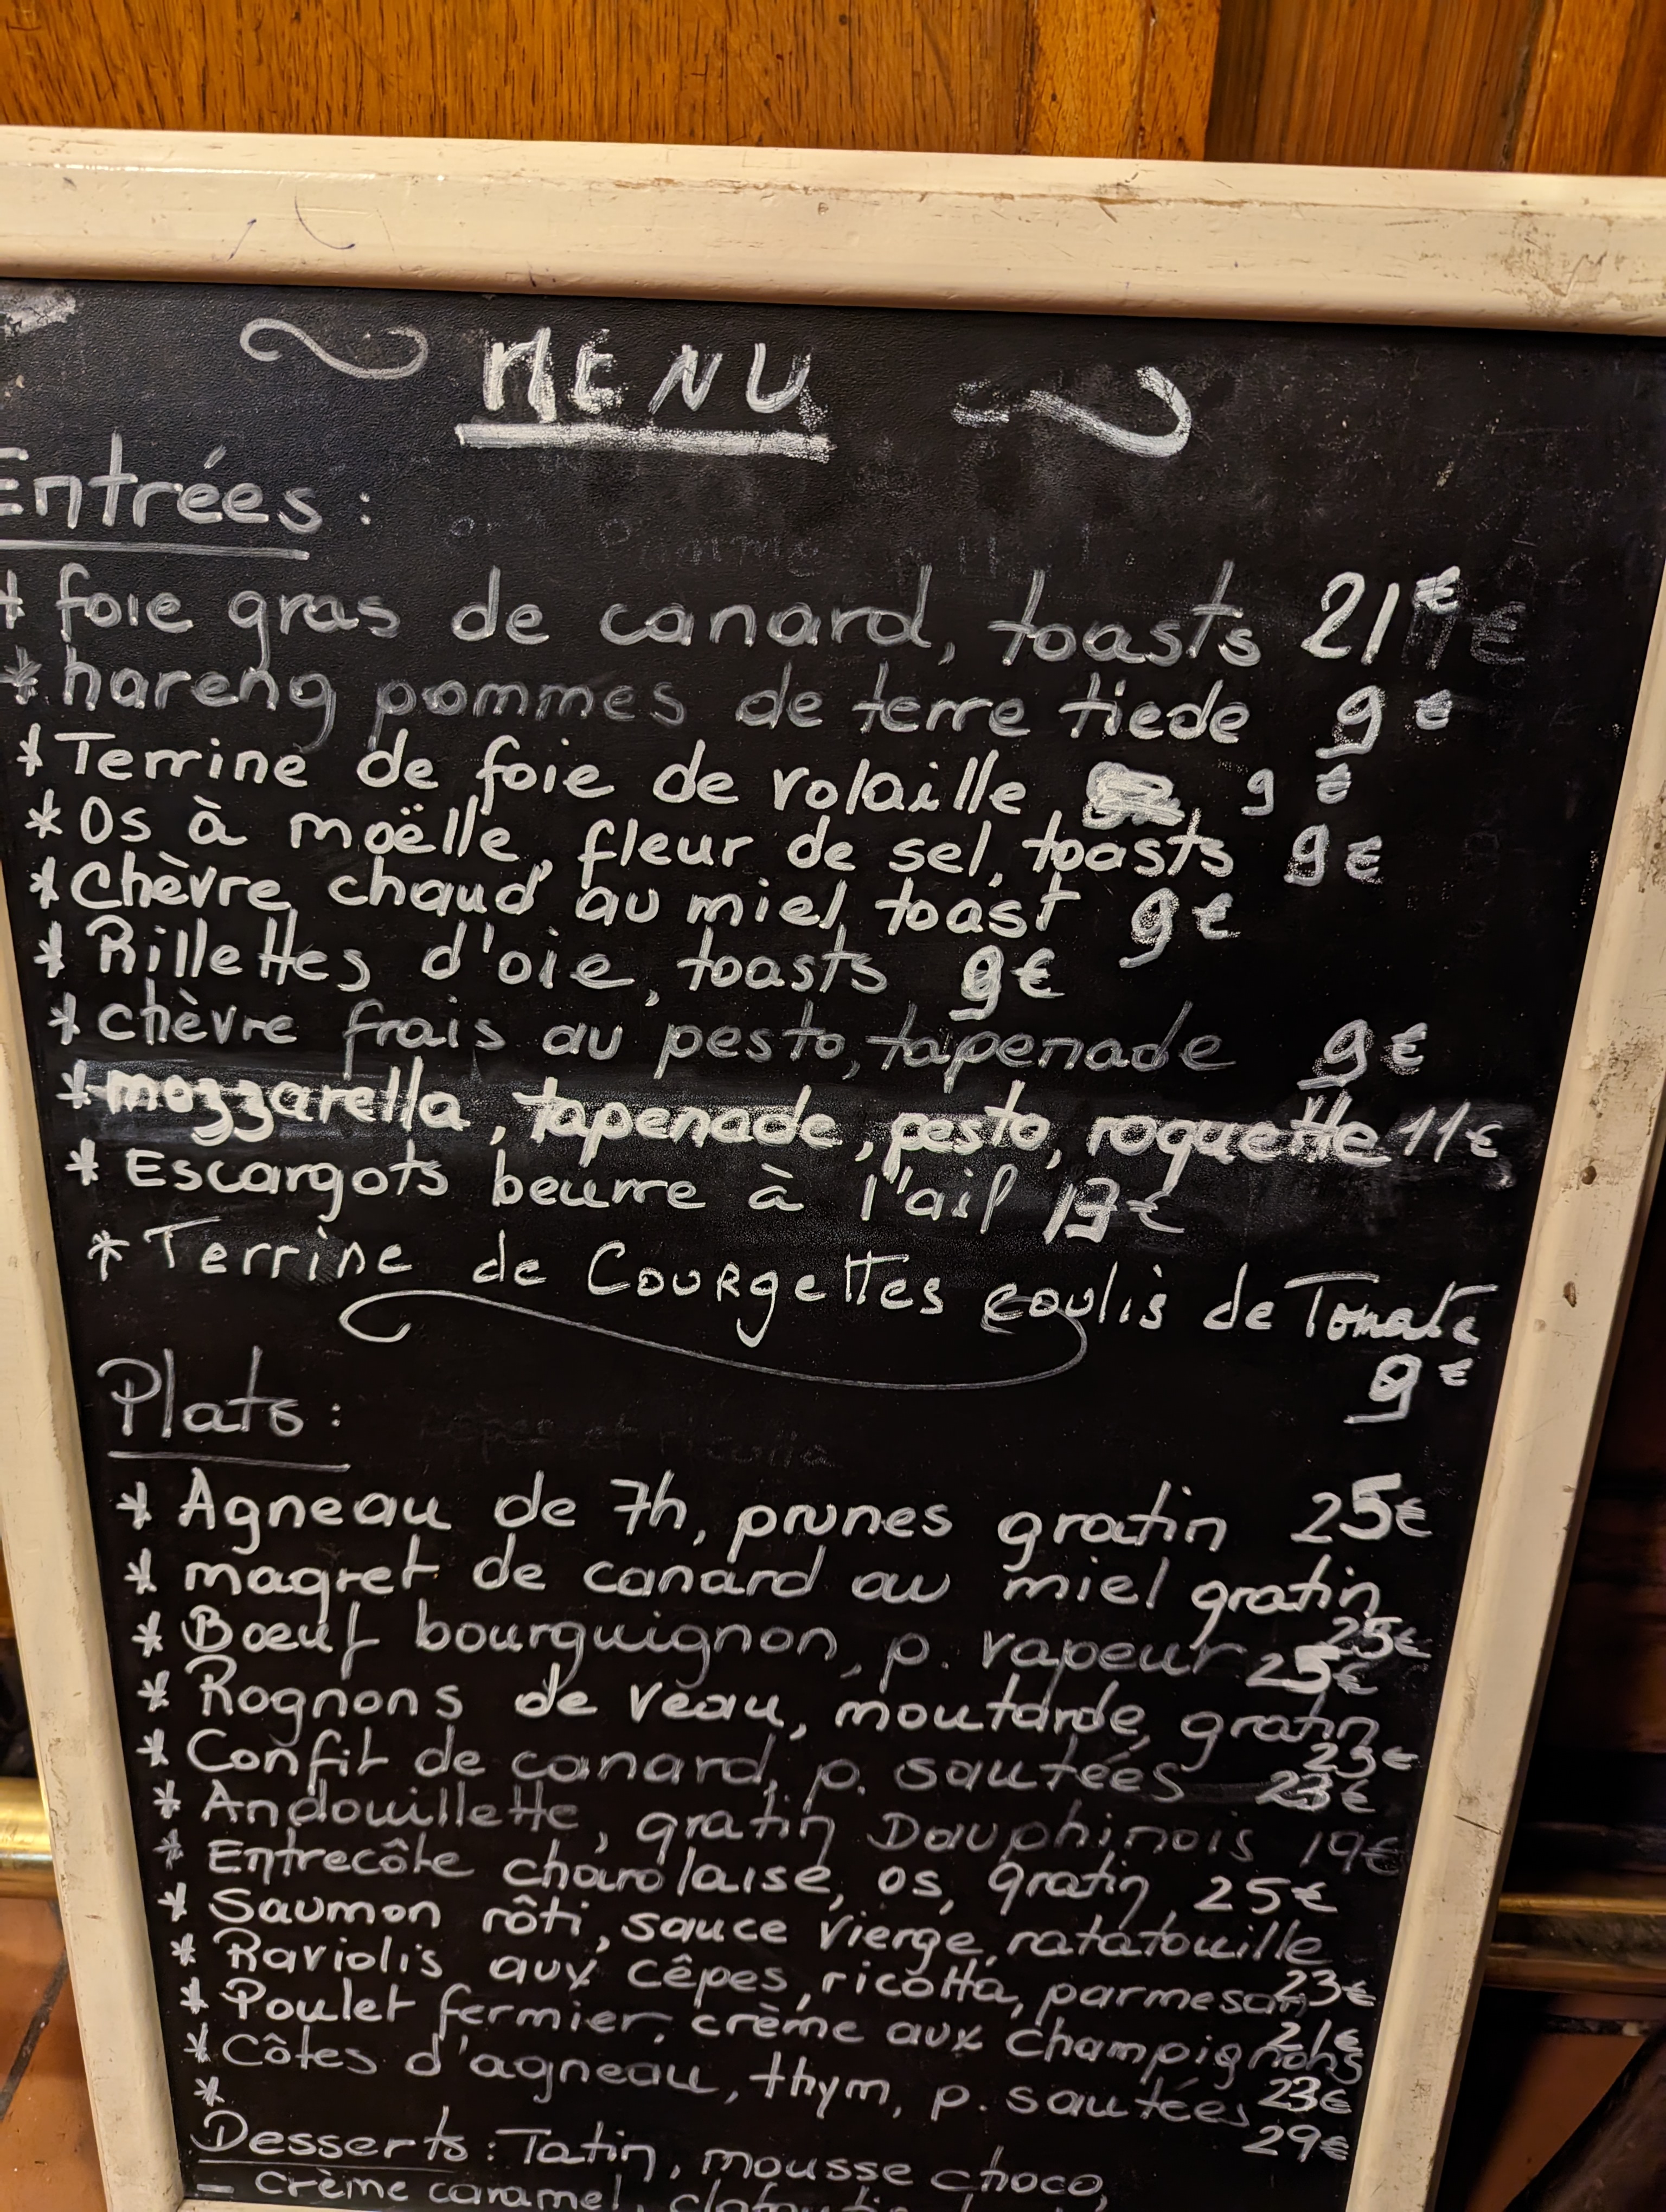 MENU
Entrées :
* foie gras de canard, toasts 21€
* hareng pommes de terre tiede 9€
* Terrine de foie de volaille, 9€
* Os à moëlle, fleur de sel, toasts 9€
* Chèvre chaud au miel, toast 9€
* Rillettes d'oie, toasts 9€
* chèvre frais au pesto, tapenade 9€
* mozzarella, tapenade, pesto, roquette 11€
* Escargots beurre à l'ail 13€
* Terrine de Courgettes coulis de Tomate
9€
Plats :
* Agneau de 7h, prunes gratin 25€
* magret de canard au miel gratin
25€
* Bœuf bourguignon, p. vapeur 25€
* Rognons de veau, moutarde, gratin
23€
* Confit de canard, p. sautées 23€
* Andouillette, gratin Dauphinois 19€
* Entrecôte charolaise, os, gratin 25€
* Saumon rôti, sauce vierge, ratatouille
23€
* Raviolis aux cêpes, ricotta, parmesan
21€
* Poulet fermier, crème aux champignons
23€
* Côtes d'agneau, thym, p. sautées
29€
*
Desserts : Tatin, mousse choco,
- crème caramel,